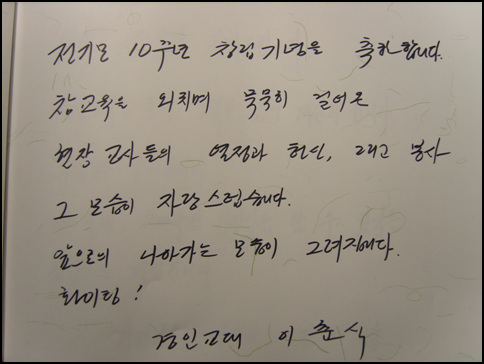 전기모 10주년 창립기념을 축하합니다.
참교육을 외치며 묵묵히 걸어온
현장 교사들의 열정과 헌신, 그리고 봉사
그 모습이 자랑스럽습니다.
앞으로의 나아가는 모습이 그려집니다.
화이팅!
경인교대 이춘식